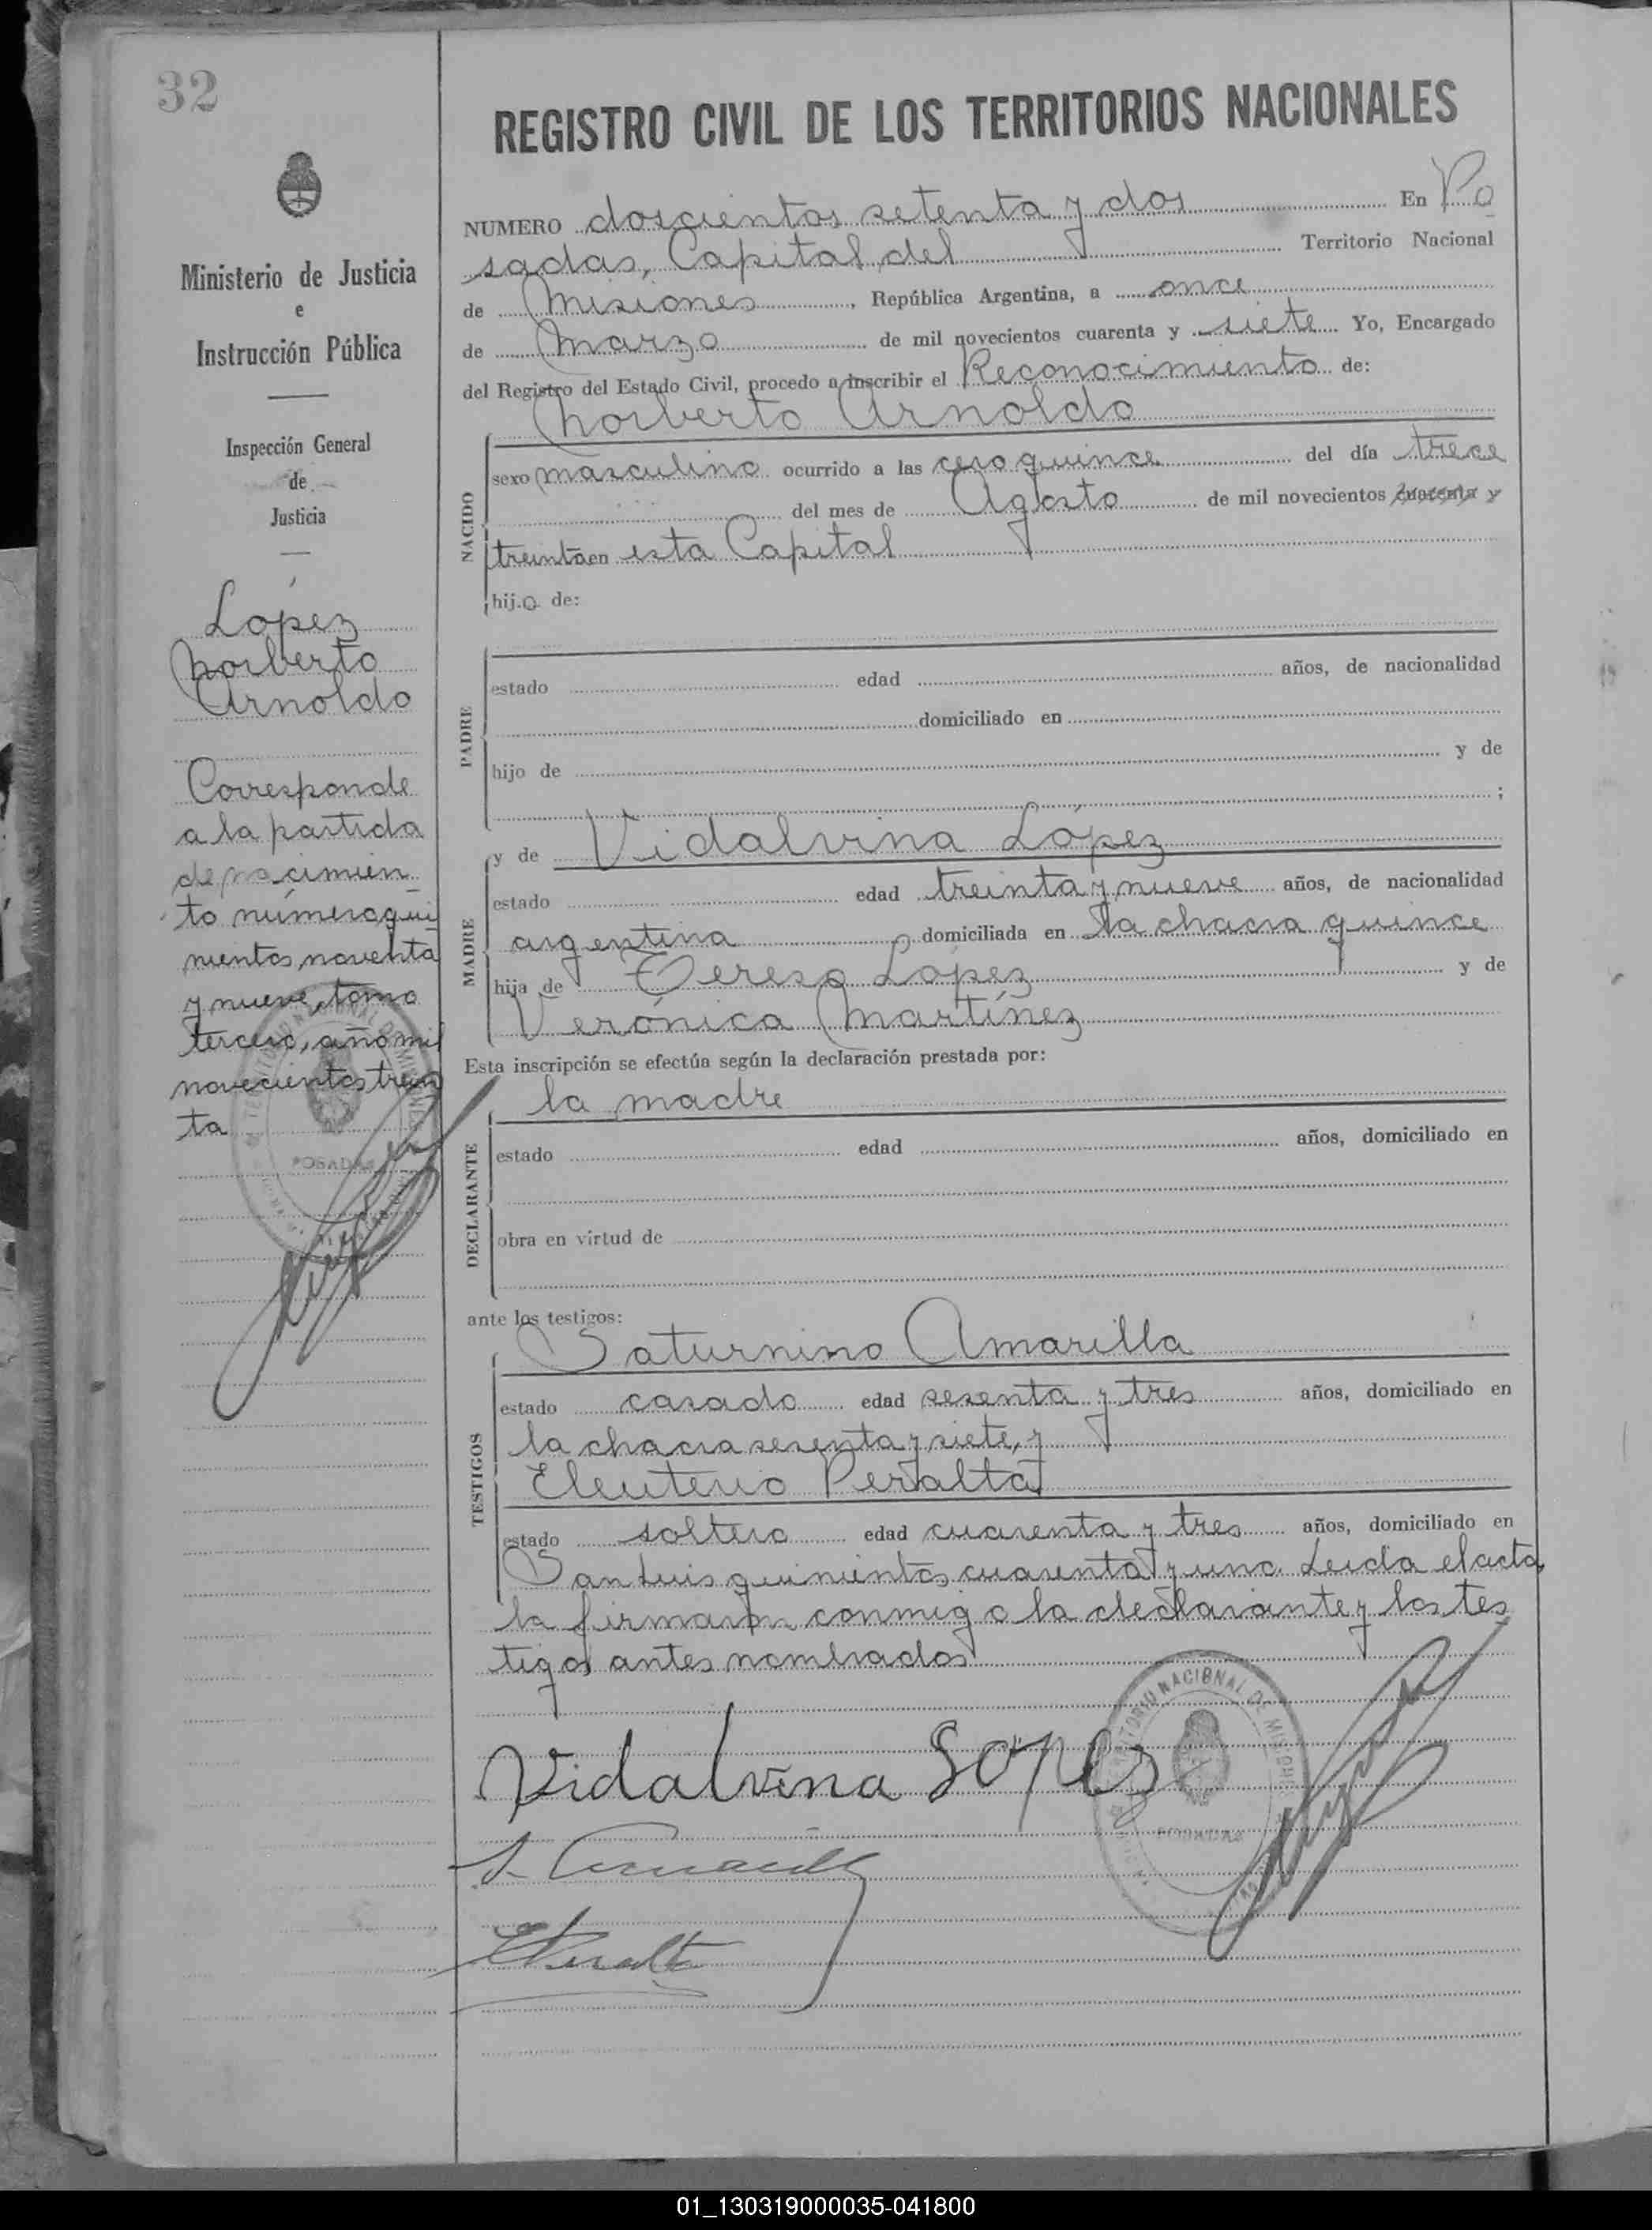 32
REGISTRO CIVIL DE LOS TERRITORIOS NACIONALES
Ministerio de Justicia
e
Instrucción Pública
Inspección General
de
Justicia
López
Norberto
Arnoldo
Corresponde
a la partida
de nacimien
to número qui
nientos noventa
y nueve, tomo
tercero, año mil
novecientos trein
ta
POSADAS
NUMERO doscientos setenta y dos En Po
sadas, Capital del Territorio Nacional
de Misiones, República Argentina, a once
de Marzo de mil novecientos cuarenta y siete Yo, Encargado
del Registro del Estado Civil, procedo a inscribir el Reconocimiento de:
Norberto Arnoldo
NACIDO
sexo masculino ocurrido a las cero quince del día trece
del mes de Agosto de mil novecientos cuarenta y
treinta en esta Capital
hij.o. de:
PADRE
estado edad años, de nacionalidad
domiciliado en
hijo de y de
;
MADRE
y de Vidalvina López
estado edad treinta y nueve años, de nacionalidad
argentina domiciliada en la chacra quince
hija de Tereso López y de
Verónica Martínez
Esta inscripción se efectúa según la declaración prestada por:
la madre
DECLARANTE
estado edad años, domiciliado en
obra en virtud de
ante los testigos:
Saturnino Amarilla
TESTIGOS
estado casado edad sesenta y tres años, domiciliado en
la chacra sesenta y siete, y
Eleuterio Peralta
estado soltero edad cuarenta y tres años, domiciliado en
San Luis quinientos cuarenta y uno. Leída el acta,
la firmaron conmigo la declarante y los tes
tigos antes nombrados
Vidalvina Lopez
TERRITORIO NACIONAL DE MISIONES
POSADAS
S. Amarilla
E Peralta
01_130319000035-041800